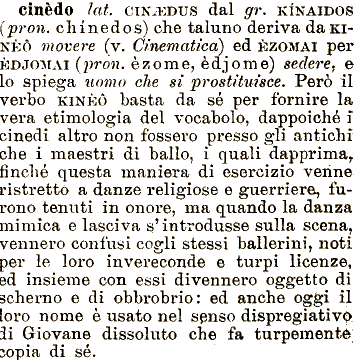 cinèdo lat. CINÆDUS dal gr. KÍNAIDOS
(pron. chinedos) che taluno deriva da KI-
NÈÔ movere (v. Cinematica) ed ÈZOMAI per
ÈDJOMAI (pron. èzome, èdjome) sedere, e
lo spiega uomo che si prostituisce. Però il
verbo KINÈÔ basta da sé per fornire la
vera etimologia del vocabolo, dappoiché i
cinedi altro non fossero presso gli antichi
che i maestri di ballo, i quali dapprima,
finché questa maniera di esercizio venne
ristretto a danze religiose e guerriere, fu-
rono tenuti in onore, ma quando la danza
mimica e lasciva s'introdusse sulla scena,
vennero confusi cogli stessi ballerini, noti
per le loro invereconde e turpi licenze,
ed insieme con essi divennero oggetto di
scherno e di obbrobrio: ed anche oggi il
loro nome è usato nel senso dispregiativo
di Giovane dissoluto che fa turpemente
copia di sé.